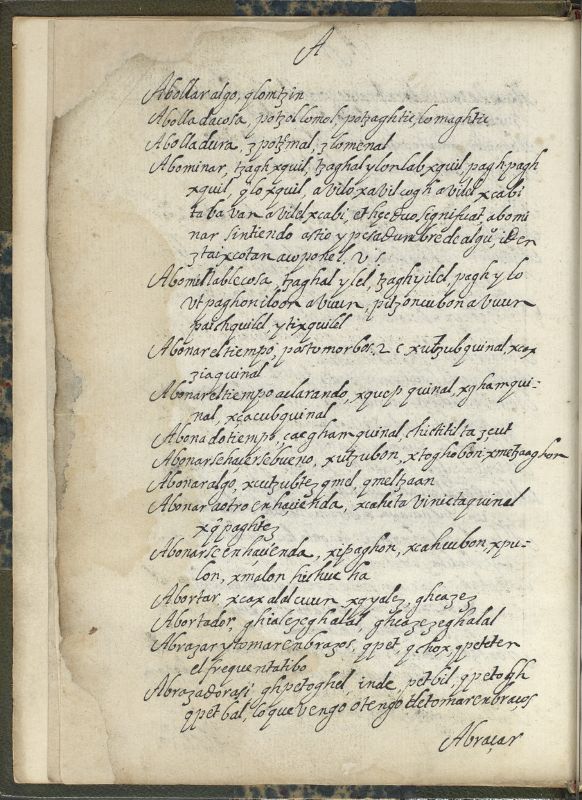 A
Abollar algo, qlomtzin
Abollada cosa, potzol lomol, potzaghtic, lomaghtic
Abolladura, z potzmal, z lomenal
Abominar, tzagh xquil, tzaghal ylon lab xquil, pagh pagh
xquil, ylo xquil, a vilo xavil cogh a vilel xcabi
ta ba van a vilel xcabi, et hec duo significat abomi
nar sintiendo astio y pesadumbre de algu,
Abomillable cosa, tzaghal ylel, tzagh yilel, pagh y lo
vt paghon iloon a vuun, pitzon cubon a vuun
patchquilel, ytixquilel
Abonar el tiempo, past. morbos. 2 c xutzub quinal, xcax
zia quinal
Abonar el tiempo aclarando, xquep quinal, xgham qui-
nal, xcacub quinal
Abonado tiempo, caegham quinal, chicktilta zcut
Abonarse hacerse bueno, xutzubon, xtoghobon, xmetzaaghon
Abonar algo, xcutzubtez qmel, qmeltzaan
Abonar a otro en hacienda, xcaheta vinicta quinal
xq paghtez
Abonarse en hacienda, xipaghon, xcahcubon, xpu-
lon, xmalon
Abortar, xcax alal cuun xqyalez, gheazez
Abortador, ghialez eghalal, gheazez eghalal
Abrazar y tomar en brazos, qpet, qchox, qpeteter
el frequentatibo
Abrazador asi, ghpetoghel inde, petbil, qpetogh
qpet bal, lo que vengo o tengo de tomar en braços
Abraçar